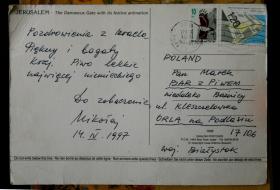 JERUSALEM - The Damascus Gate with its festive animation
Pozdrowienia z Izraela
Piękny i bogaty
kraj. Piwo lekkie
najwięcej niemieckiego
Do zobaczenia,
Mikołaj
14. IV. 1997
POLAND
Pan Marek
BAR Z PIWEM
niedaleko Bożnicy
ul. Kleszczelowska
ORLA na Podlasiu
17 106
woj. Białystok